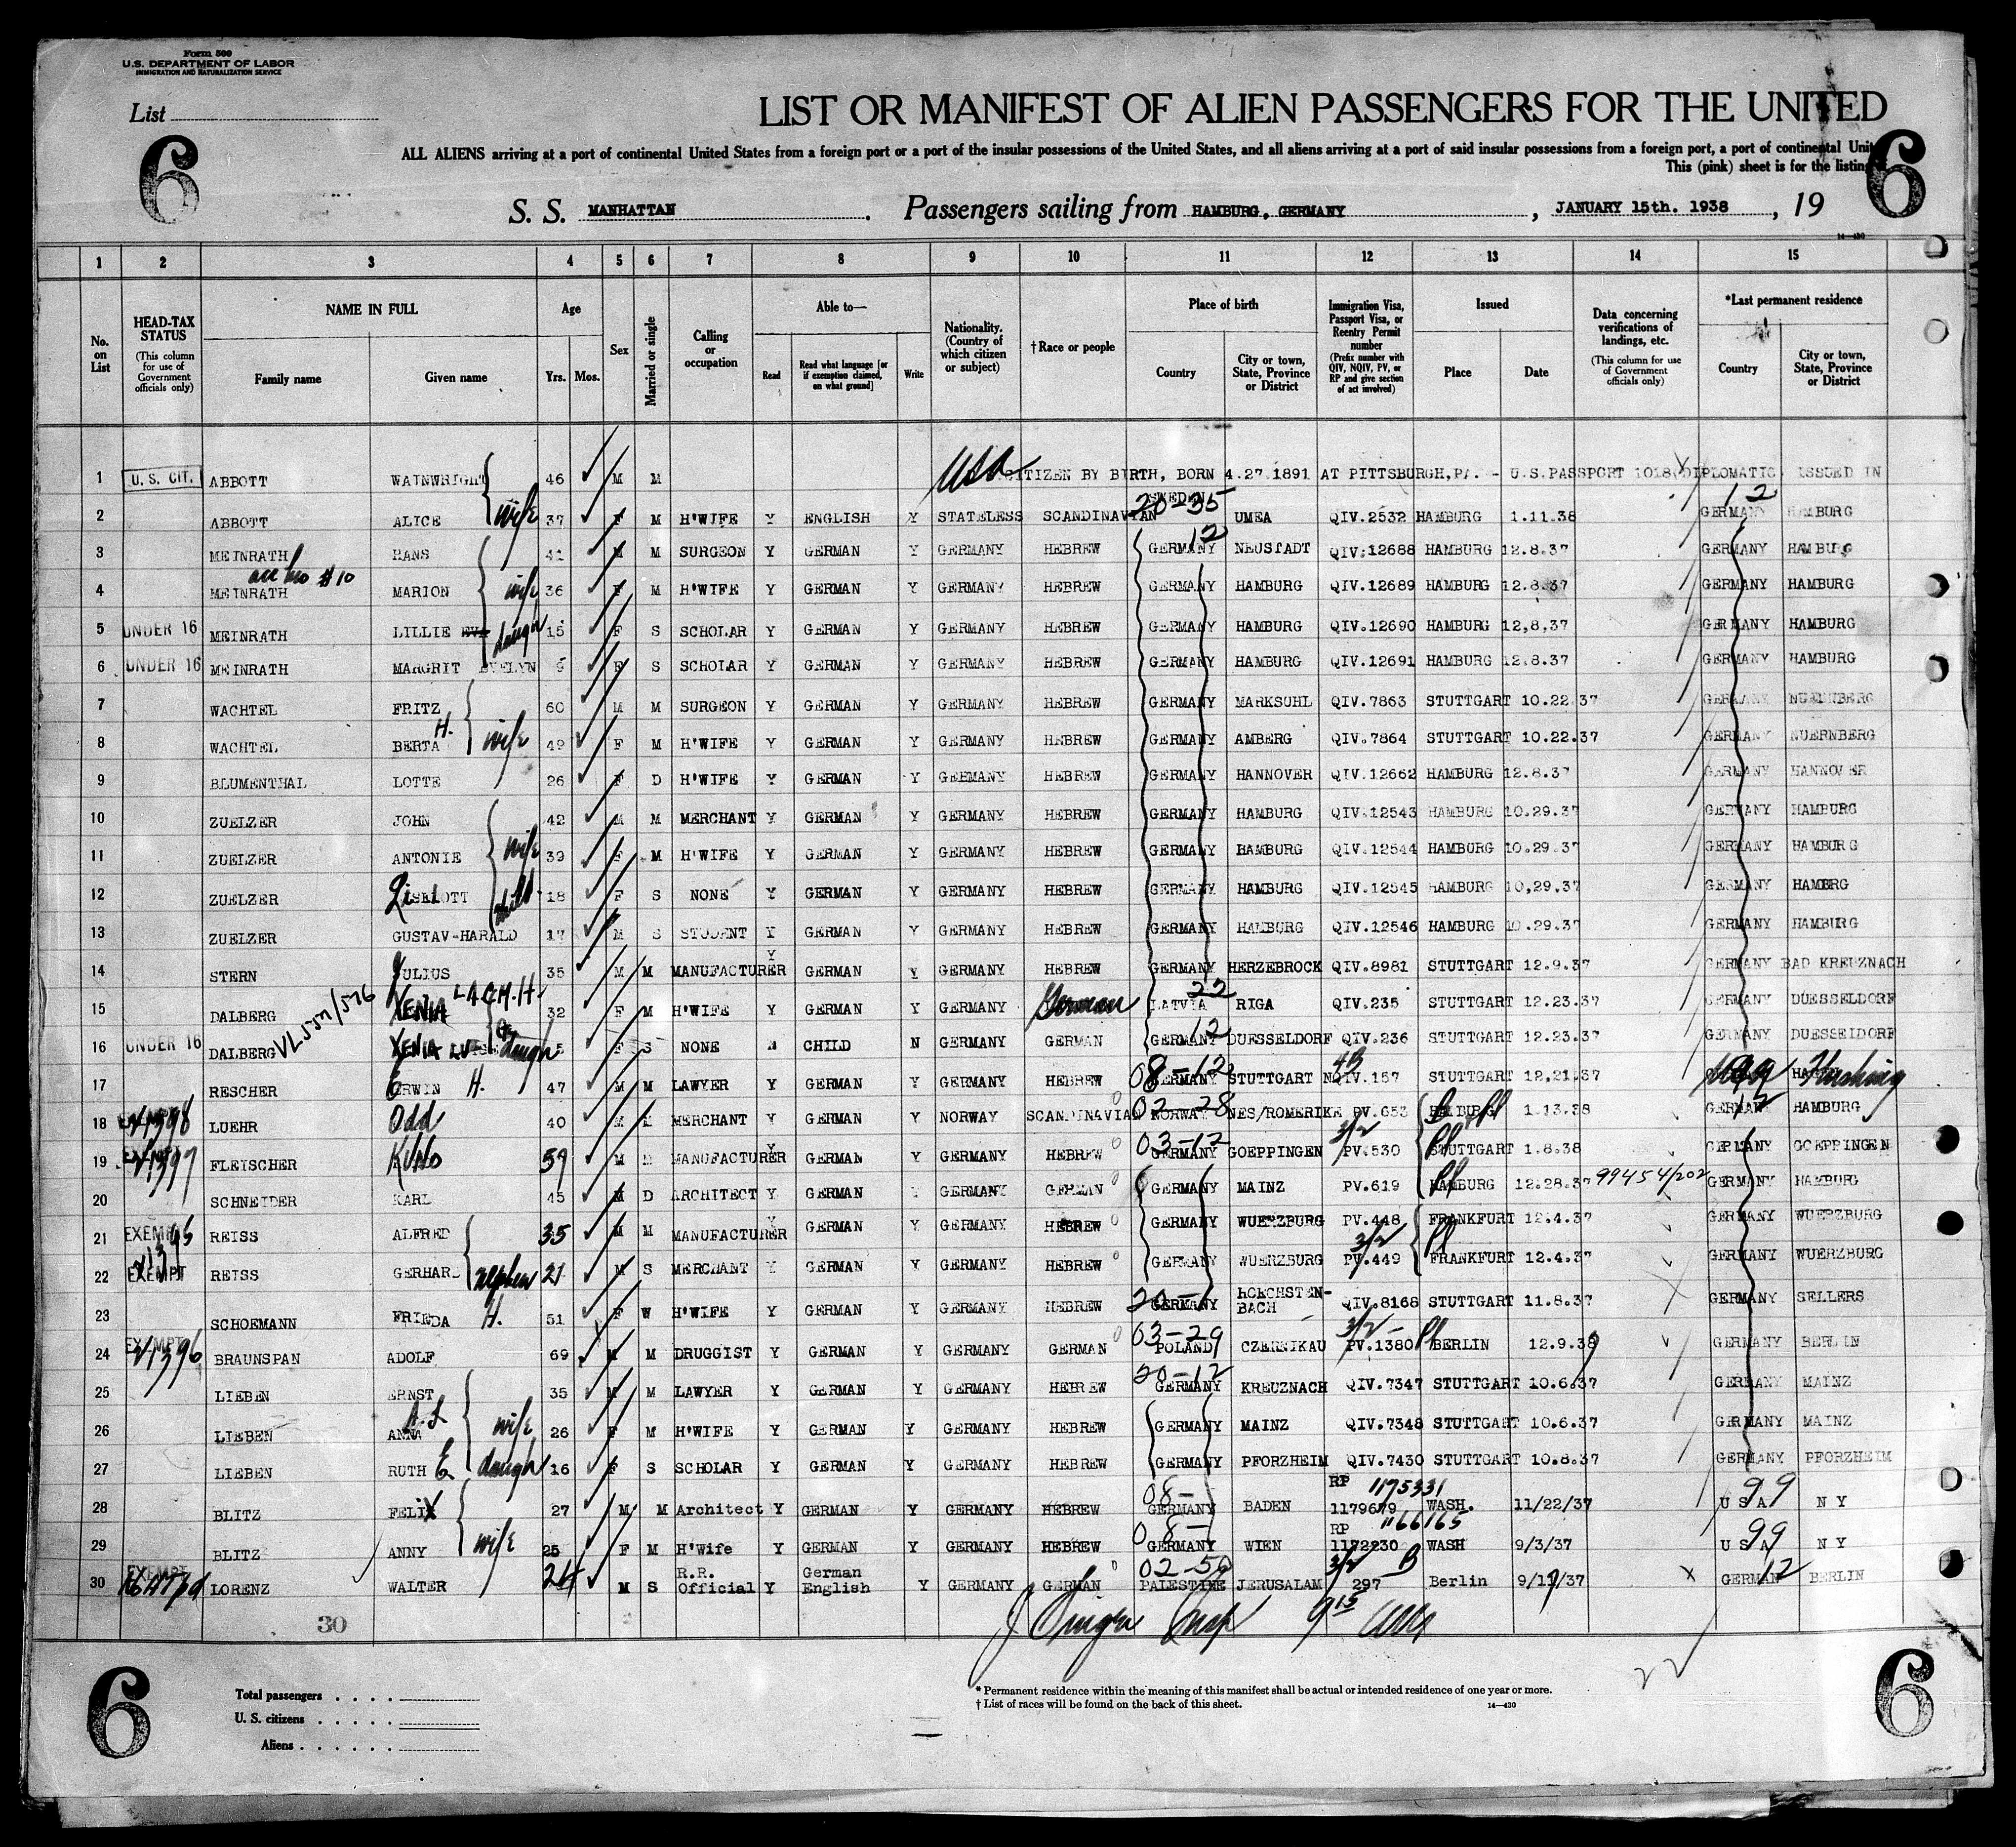 Form 500
U.S. DEPARTMENT OF LABOR
IMMIGRATION AND NATURALIZATION SERVICE
List
6
LIST OR MANIFEST OF ALIEN PASSENGERS FOR THE UNITED
6
ALL ALIENS arriving at a port of continental United States from a foreign port or a port of the insular possessions of the United States, and all aliens arriving at a port of said insular possessions from a foreign port, a port of continental
This (pink) sheet is for the listing
S. S. MANHATTAN. Passengers sailing from HAMBURG, GERMANY, JANUARY 15th. 1938, 19
14—430
1 2 3 4 5 6 7 8 9 10 11 12 13 14 15
No. on List
HEAD-TAX STATUS (This column for use of Government officials only)
NAME IN FULL
Family name Given name
Age
Yrs. Mos.
Sex
Married or single
Calling or occupation
Able to—
Read Read what language [or if exemption claimed, on what ground] Write
Nationality. (Country of which citizen or subject)
†Race or people
Place of birth
Country City or town, State, Province or District
Immigration Visa, Passport Visa, or Reentry Permit number (Prefix number with QIV, NQIV, PV, or RP and give section of act involved)
Issued
Place Date
Data concerning verifications of landings, etc. (This column for use of Government officials only)
*Last permanent residence
Country City or town, State, Province or District
1 U.S. CIT. ABBOTT WAINWRIGHT 46 M M USA CITIZEN BY BIRTH, BORN 4.27.1891 AT PITTSBURGH,PA. - U.S.PASSPORT 1018(DIPLOMATIC) ISSUED IN
2 ABBOTT ALICE wife 37 F M H'WIFE Y ENGLISH Y STATELESS SCANDINAVIAN SWEDEN 20-35 UMEA QIV.2532 HAMBURG 1.11.38 12 GERMANY HAMBURG
3 MEINRATH HANS 41 M M SURGEON Y GERMAN Y GERMANY HEBREW 12 GERMANY NEUSTADT QIV.12688 HAMBURG 12.8.37 GERMANY HAMBURG
#10
4 MEINRATH MARION wife 36 F M H'WIFE Y GERMAN Y GERMANY HEBREW GERMANY HAMBURG QIV.12689 HAMBURG 12.8.37 GERMANY HAMBURG
5 UNDER 16 MEINRATH LILLIE EVA daugh 15 F S SCHOLAR Y GERMAN Y GERMANY HEBREW GERMANY HAMBURG QIV.12690 HAMBURG 12,8,37 GERMANY HAMBURG
6 UNDER 16 MEINRATH MARGRIT EVELYN 9 F S SCHOLAR Y GERMAN Y GERMANY HEBREW GERMANY HAMBURG QIV.12691 HAMBURG 12.8.37 GERMANY HAMBURG
7 WACHTEL FRITZ 60 M M SURGEON Y GERMAN Y GERMANY HEBREW GERMANY MARKSUHL QIV.7863 STUTTGART 10.22.37 GERMANY NUERNBERG
8 WACHTEL BERTA H. wife 49 F M H'WIFE Y GERMAN Y GERMANY HEBREW GERMANY AMBERG QIV.7864 STUTTGART 10.22.37 GERMANY NUERNBERG
9 BLUMENTHAL LOTTE 26 F D H'WIFE Y GERMAN Y GERMANY HEBREW GERMANY HANNOVER QIV.12662 HAMBURG 12.8.37 GERMANY HANNOVER
10 ZUELZER JOHN 42 M M MERCHANT Y GERMAN Y GERMANY HEBREW GERMANY HAMBURG QIV.12543 HAMBURG 10.29.37 GERMANY HAMBURG
11 ZUELZER ANTONIE wife 39 F M H'WIFE Y GERMAN Y GERMANY HEBREW GERMANY HAMBURG QIV.12544 HAMBURG 10.29.37 GERMANY HAMBURG
12 ZUELZER LISELOTT child 18 F S NONE Y GERMAN Y GERMANY HEBREW GERMANY HAMBURG QIV.12545 HAMBURG 10,29.37 GERMANY HAMBRG
13 ZUELZER GUSTAV-HARALD 17 M S STUDENT Y GERMAN Y GERMANY HEBREW GERMANY HAMBURG QIV.12546 HAMBURG 10.29.37 GERMANY HAMBURG
14 STERN JULIUS 35 M M MANUFACTURER Y GERMAN Y GERMANY HEBREW GERMANY HERZEBROCK QIV.8981 STUTTGART 12.9.37 GERMANY BAD KREUZNACH
15 DALBERG XENIA 32 F M H'WIFE Y GERMAN Y GERMANY German LATVIA 22 RIGA QIV.235 STUTTGART 12.23.37 GERMANY DUESSELDORF
16 UNDER 16 DALBERG XENIA daugh 5 F S NONE N CHILD N GERMANY GERMAN GERMANY 12 DUESSELDORF QIV.236 STUTTGART 12.23.37 GERMANY DUESSELDORF
17 RESCHER ERWIN H. 47 M M LAWYER Y GERMAN Y GERMANY HEBREW 08-12 GERMANY STUTTGART 4B NQIV.157 STUTTGART 12.21.37 99 Flushing
18 LUEHR Odd 40 M MERCHANT Y GERMAN Y NORWAY SCANDINAVIAN 02-28 NORWAY NES/ROMERIKE PV.653 HAMBURG 1.13.38 12 GERMANY HAMBURG
19 FLEISCHER KUNO 59 M MANUFACTURER Y GERMAN Y GERMANY HEBREW 03-12 GERMANY GOEPPINGEN 3/2 PV.530 STUTTGART 1.8.38 GERMANY GOEPPINGEN
20 SCHNEIDER KARL 45 M D ARCHITECT Y GERMAN Y GERMANY GERMAN GERMANY MAINZ PV.619 HAMBURG 12.28.37 99454/202 GERMANY HAMBURG
21 EXEMPT REISS ALFRED 35 M M MANUFACTURER Y GERMAN Y GERMANY HEBREW GERMANY WUERZBURG PV.448 FRANKFURT 12.4.37 GERMANY WUERZBURG
22 EXEMPT REISS GERHARD nephew 21 M S MERCHANT Y GERMAN Y GERMANY HEBREW GERMANY WUERZBURG 3/2 PV.449 FRANKFURT 12.4.37 GERMANY WUERZBURG
23 SCHOEMANN FRIEDA H. 51 F W H'WIFE Y GERMAN Y GERMANY HEBREW GERMANY QIV.8168 STUTTGART 11.8.37 GERMANY SELLERS
24 EXEMPT BRAUNSPAN ADOLF 69 M M DRUGGIST Y GERMAN Y GERMANY GERMAN 03-29 POLAND CZERNIKAU 3/2 PV.1380 BERLIN 12.9.38 GERMANY BERLIN
25 LIEBEN ERNST 35 M M LAWYER Y GERMAN Y GERMANY HEBREW 20-12 GERMANY KREUZNACH QIV.7347 STUTTGART 10.6.37 GERMANY MAINZ
26 LIEBEN ANNA wife 26 F M H'WIFE Y GERMAN Y GERMANY HEBREW GERMANY MAINZ QIV.7348 STUTTGART 10.6.37 GERMANY MAINZ
27 LIEBEN RUTH E daugh 16 F S SCHOLAR Y GERMAN Y GERMANY HEBREW GERMANY PFORZHEIM QIV.7430 STUTTGART 10.8.37 GERMANY PFORZHEIM
28 BLITZ FELIX 27 M M Architect Y GERMAN Y GERMANY HEBREW 08- GERMANY BADEN RP 1175331 1179679 WASH. 11/22/37 99 U S A N Y
29 BLITZ ANNY wife 25 F M H'Wife Y GERMAN Y GERMANY HEBREW 08- GERMANY WIEN RP 1166165 1172230 WASH 9/3/37 99 U S A N Y
30 EXEMPT LORENZ WALTER 24 M S R.R. Official Y German English Y GERMANY GERMAN 02-50 PALESTINE JERUSALAM 3/2 297 B Berlin 9/17/37 12 GERMAN BERLIN
30
6
Total passengers
U. S. citizens
Aliens
* Permanent residence within the meaning of this manifest shall be actual or intended residence of one year or more.
† List of races will be found on the back of this sheet.
14—430
6